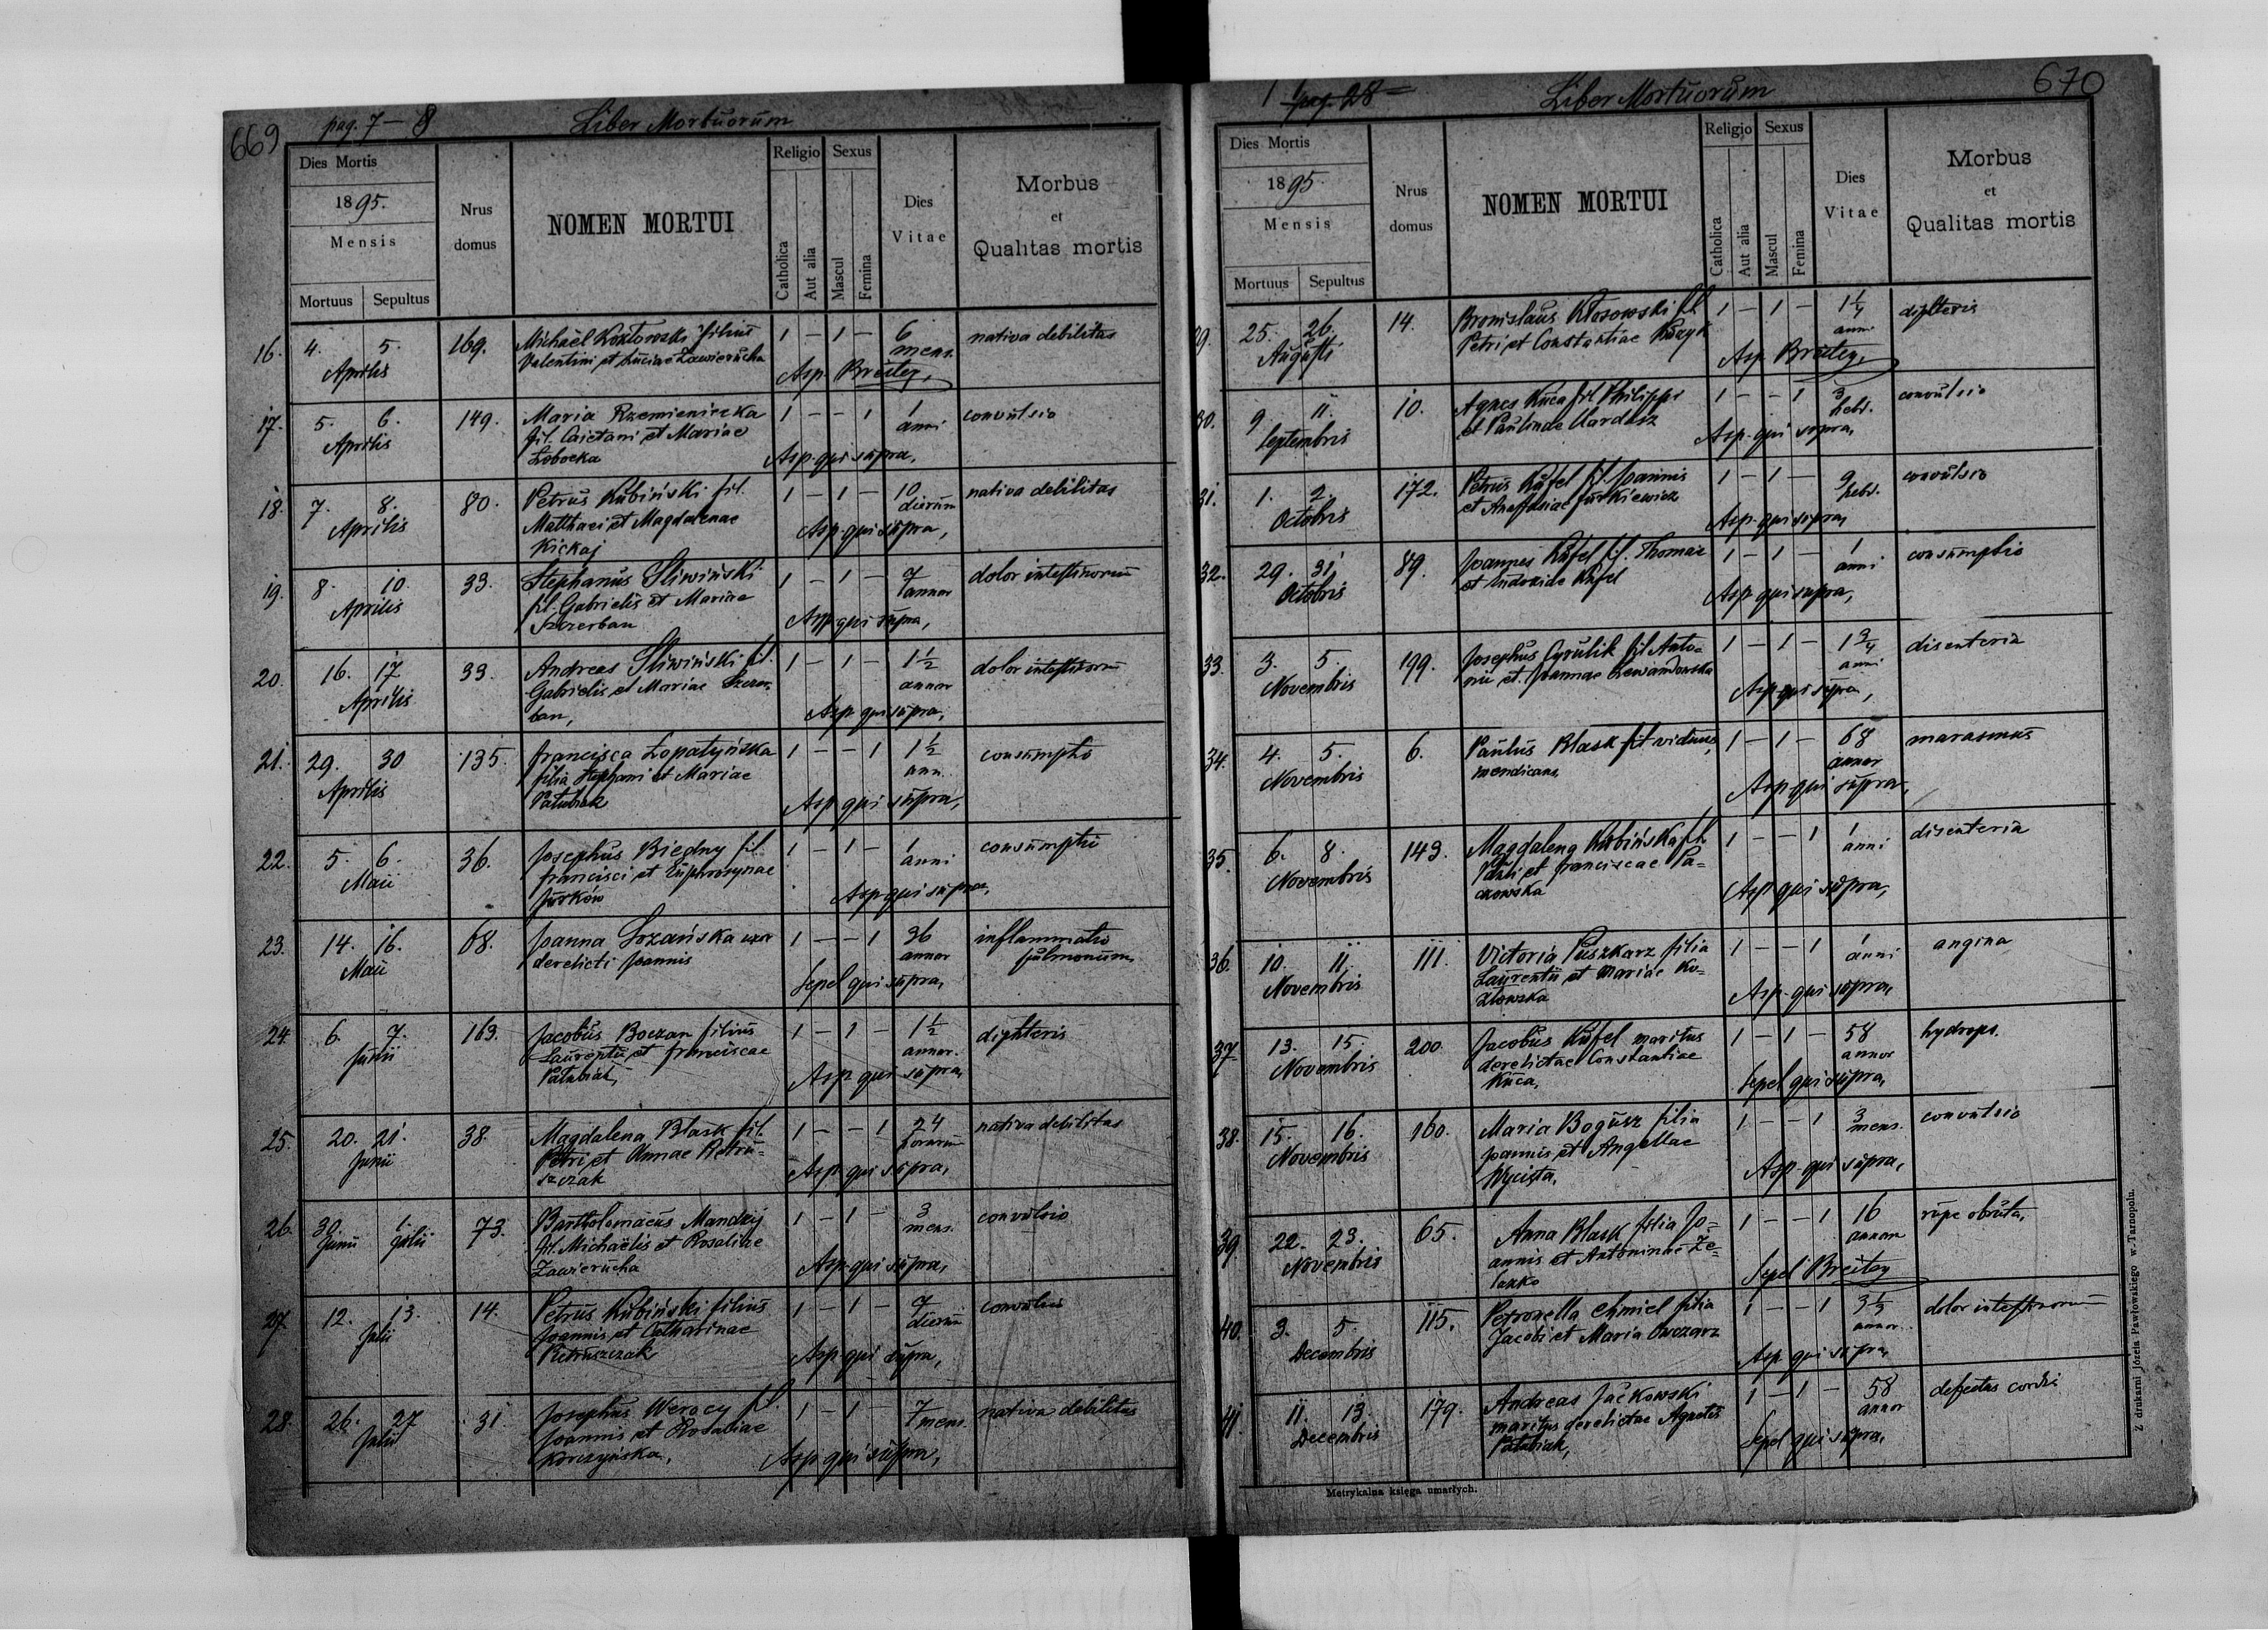 669
pag. 7 — 8
Liber Mortuorum
Dies Mortis
1895.
Mensis
Mortuus Sepultus
Nrus domus
NOMEN MORTUI
Religio
Catholica
Aut alia
Sexus
Mascul
Femina
Dies Vitae
Morbus
et
Qualitas mortis
16. 4. 5. 169. Michaël filius 1 – 1 – 6 nativa debilitas
Aprilis Valentini et Luciae Zawierucha mens.
Asp. Breitey,
17. 5. 6. 149. Maria Rzemieniecka 1 – – 1 1 convulsio
Aprilis fil. Caietani et Mariae anni
Łobocka Asp. qui supra,
18. 7. 8. 80. Petrus Kubiński fil. 1 – 1 – 10 nativa debilitas
Aprilis Matthaei et Magdalenae dierum
Kickaj Asp. qui supra,
19. 8. 10. 33. Stephanus Śliwiński 1 – 1 – 7 dolor intestinorum
Aprilis fil. Gabrielis et Mariae annor
Szczerban Asp. qui supra,
20. 16. 17 33. Andreas Śliwiński fil. 1 – 1 – 1 1/2 dolor intestinorum
Aprilis Gabrielis et Mariae Szczer- annor
ban, Asp. qui supra,
21. 29. 30 135. Francisca Łopatyńska 1 – – 1 1 1/2 consumptio
Aprilis filia Stephani et Mariae ann.
Asp qui supra,
22. 5. 6. 36. Josephus Biegdny fil. 1 – 1 – 1 consumptio
Maii Francisci et Euphrosynae anni
Jurków Asp qui supra,
23. 14. 16. 68. Joanna Łozańska uxor 1 – – 1 36 inflammatio
Maii derelicti Joannis annor pulmonum
Sepel qui supra,
24. 6. 7. 163. Jacobus Boczan filius 1 – 1 – 1 1/2 diphteris
Junii Laurentii et Franciscae annor.
Asp qui supra,
25. 20. 21. 38. Magdalena Błask fil. 1 – – 1 24 nativa debilitas
Junii Petri et Annae Pietru- horarum
szczak Asp. qui supra,
26. 30. 1. 73. Bartholomaeus Mandzij 1 – 1 – 3 convulsio
Junii Julii fil. Michaëlis et Rosaliae mens.
Zawierucha Asp. qui supra,
27. 12. 13. 14. Petrus Kubiński filius 1 – 1 – 7 convulsio
Julii Joannis et Catharinae dierum
Pietruszczak Asp. qui supra,
28. 26. 27 31 Josephus Werocy fil. 1 – 1 – 7 nativa debilitas
Julii Joannis et Rosaliae mens.
Korczyńska, Asp qui supra,
670
pag. 28
Liber Mortuorum
Dies Mortis
1895.
Mensis
Mortuus Sepultus
Nrus domus
NOMEN MORTUI
Religio
Catholica
Aut alia
Sexus
Mascul
Femina
Dies
Vitae
Morbus
et
Qualitas mortis
29. 25. 26. 14. Bronislaus Kłosowski fil. 1 – 1 – 1 1/4 diphteris
Augusti Petri et Constantiae anni
Asp Breitey,
30. 9 11. 10. Agnes Kuca fil. Philippi 1 – – 1 3 convulsio
Septembris et Paulinae Uardasz hebd.
Asp. qui supra,
31. 1. 2. 172. Petrus Kufel fil. Joannis 1 – 1 – 9 convulsio
Octobris et Anastasiae Jurkiewicz hebd.
Asp. qui supra,
32. 29. 31. 89. Joannes Kufel fil. Thomae 1 – 1 – 1 consumptio
Octobris et Eudoxide Kufel anni
Asp qui supra,
33. 3. 5. 199. Josephus Cyrulik fil Anto- 1 – 1 – 1 3/4 disenteria
Novembris nii et Joannae Lewandowska anni
Asp qui supra,
34. 4. 5. 6. Paulus Błask viduus, 1 – 1 – 68 marasmus
Novembris mendicans, annor
Asp qui supra,
35. 6. 8. 143. Magdalena Kubińska fil. 1 – – 1 1 disenteria
Novembris Pauli et Franciscae Pa- anni
czowska Asp qui supra,
36. 10. 11. 111. Victoria Puszkarz filia 1 – – 1 1 angina
Novembris Laurentii et Mariae Ko- anni
złowska Asp. qui supra,
37. 13. 15. 200. Jacobus Kufel maritus 1 – 1 – 58 hydrops.
Novembris derelictae Constantiae annor
Kuca, Sepel qui supra,
38. 15. 16. 160. Maria Bogusz filia 1 – – 1 3 convulsio
Novembris Joannis et Angellae mens.
Wycista, Asp. qui supra,
39. 22. 23. 65. Anna Błask filia Jo- 1 – – 1 16 rupe obruta,
Novembris annis et Antoninae Że- annor
lazko Sepel Breitey
40. 3. 5. 115. Petronella Chmiel filia 1 – – 1 3 1/3 dolor intestinorum
Decembris Jacobi et Maria Owczarz annor.
Asp qui supra,
41. 11. 13. 179. Andreas Jackowski 1 – 1 – 58 defectus cordis
Decembris maritus derelictae Agnetis annor
Sepel qui supra,
Metrykalna księga umarłych.
Z drukarni Józefa Pawłowskiego w Tarnopolu.